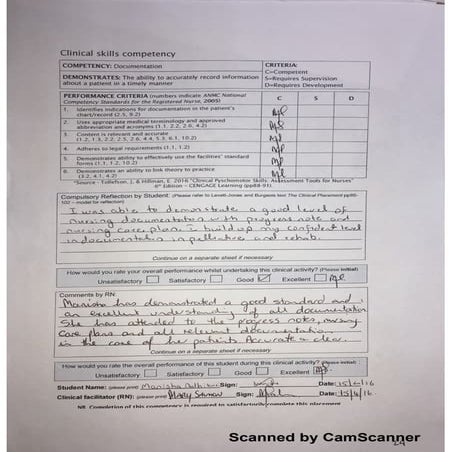 Clinical skills competency
COMPETENCY: Documentation
CRITERIA:
DEMONSTRATES: The ability to accurately record information about a patient in a timely manner
C=Competent
S=Requires Supervision
D=Requires Development
PERFORMANCE CRITERIA (numbers indicate ANMC National Competency Standards for the Registered Nurse, 2005)
C S D
1. Identifies indications for documentation in the patient's chart/record (2.5, 9.2)
2. Uses appropriate medical terminology and approved abbreviation and acronyms (1.1, 2.2, 2.6, 4.2)
3. Content is relevant and accurate
(1.2, 1.3, 2.2, 2.5, 2.6, 4.4, 5.3, 6.1, 10.2)
4. Adheres to legal requirements (1.1, 1.2)
5. Demonstrates ability to effectively use the facilities' standard forms (1.1, 1.2, 10.2)
6. Demonstrates an ability to link theory to practice
(3.2, 4.1, 4.2)
"Source - Tollefson, J. & Hillman, E. 2016 "Clinical Psychomotor Skills: Assessment Tools for Nurses"
6th Edition – CENGAGE Learning (pp88-91).
Compulsory Reflection by Student: (Please refer to Levett-Jones and Burgeois text The Clinical Placement pp95-102 – model for reflection)
I was able to demonstrate a good level of
nursing documentation with progress note and
nursing care plan. I build up my confident level
in documentation in pallative and rehab.
Continue on a separate sheet if necessary
How would you rate your overall performance whilst undertaking this clinical activity? (Please initial)
Unsatisfactory Satisfactory Good Excellent
Comments by RN:
Manisha has demonstrated a good standard and
an excellent understanding of all documentation
She has attended to the progress notes, nursing
care plans and all relevant documentation
in the care of her patients. Accurate & clear.
Continue on a separate sheet if necessary
How would you rate the overall performance of this student during this clinical activity? (Please initial)
Unsatisfactory Satisfactory Good Excellent
Student Name: (please print) Manisha Sign: Date: 15/6/16
Clinical facilitator (RN): (please print) MARY Sign: Date: 15/6/16
NB. Completion of this competency is required to satisfactorily complete this placement
Scanned by CamScanner